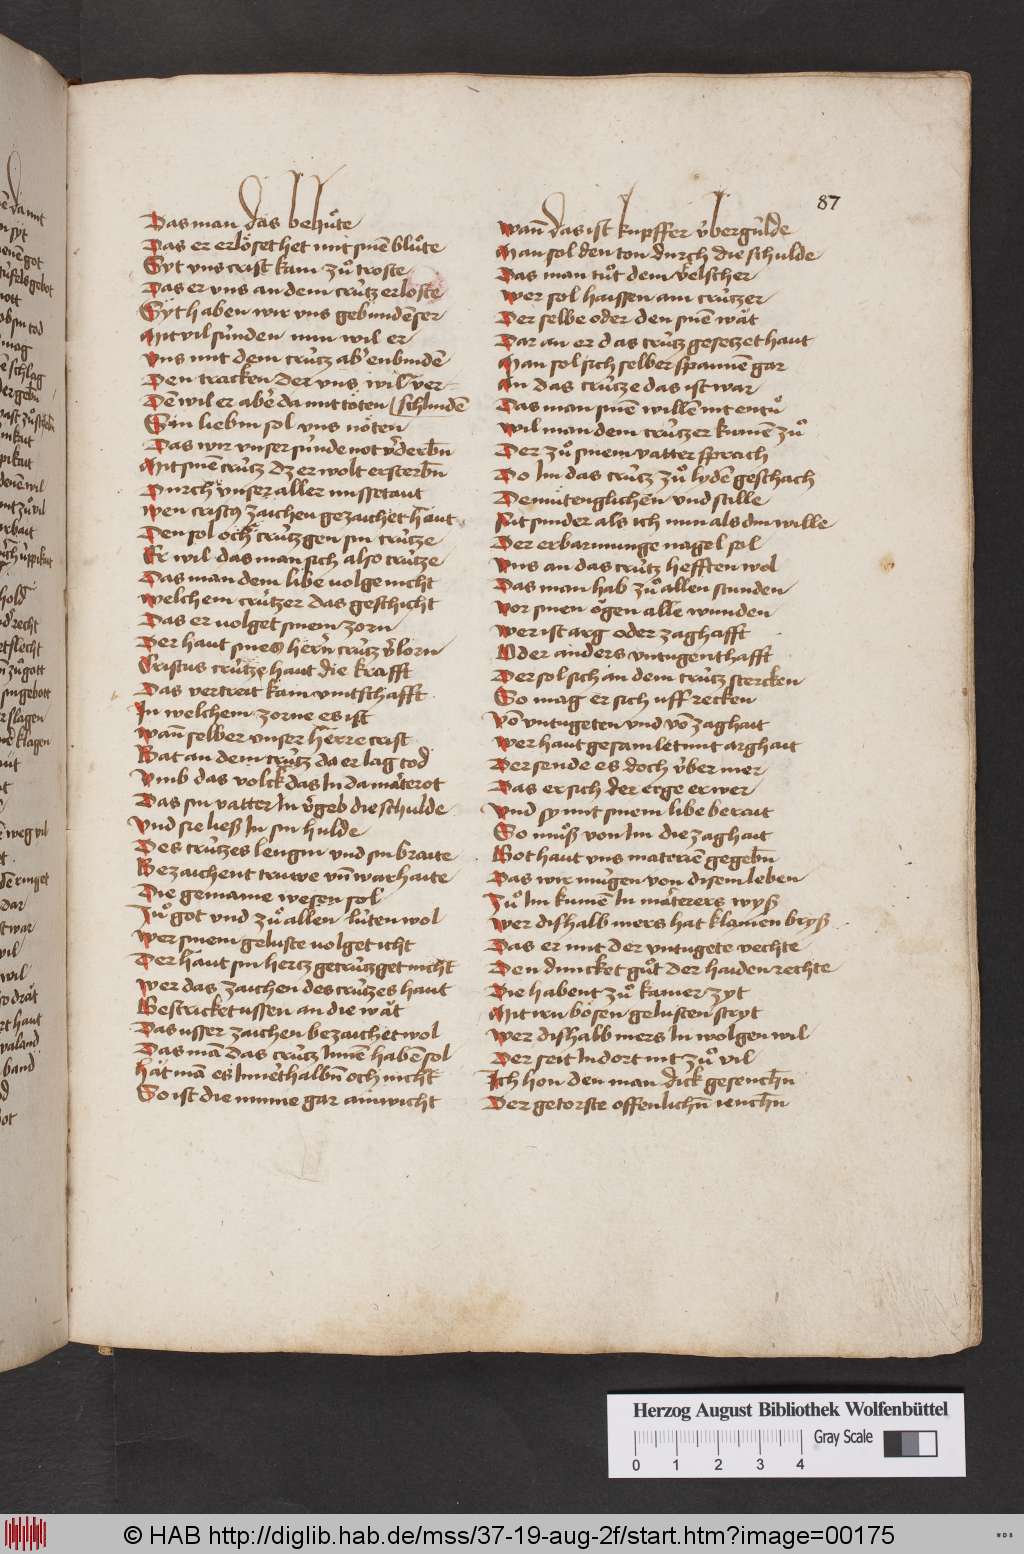 87
Das man das behuͤte
Das er erlöset het mit sinē bluͦte
Syt vns crist kam zuͦ troste
Das er vns an dem crütz erloste
Syt haben wir vns gebundē ser
Mit vil sünden nun wil er
Vns mit dem crütz ab enbindē
Den tracken der vns wil ver
Dē wil er abē da mit töten schlinden
Sin liebin sol vns nöten
Das wir vnser sünde not v̄derbn̄
Mit sinē crütz dz er wolt ersterbn̄
Durch vnser aller missetaut
Wen cristꝰ zaichen gezaichet haut
Den sol och crützgen sin crütze
Er wil das man sich also crütze
Das man dem libe uolge nicht
Welchem crützer das geschicht
Das er uolget sinem zorn
Der haut sines hern̄ crütz v̄lorn
Cristus crütze haut die krafft
Das vertreit kam vintschafft
In welchem zorne es ist
Wan̄ selber vnser herre crist
Bat an dem crütz da er lag tod
Vmb das volck das In da märterot
Das sin vatter In v̄geb die schulde
Vnd sie ließ In sin hulde
Des crützes lengin vnd sin braite
Bezaichent truwe vn̄ warhaite
Die gemaine wesen sol
Zuͦ got vnd zuͦ allen lüten wol
Wer sinem geluste uolget icht
Der haut sin hertz getrützget nicht
Wer das zaichen des crützes haut
Gestricket ussen an die wät
Das usser zaichen bezaichet wol
Das mā das crütz Innē habē sol
hät mā es Innēthalbn̄ och nicht
So ist die minne gar ainwicht
Wan̄ das ist kupffer v̈bergülde
Man sol den ton durch die schulde
Das man tuͦt dem velscher
Wer sol haissen ain crützer
Der selbe oder den sinē wät
Dar an er das crütz gesetzet haut
Man sol sich selber spannē gar
An das crütze das ist war
Das man sinē willē nit entuͦ
Wil man dem crützer kumē zuͦ
Der zuͦ sinem vatter sprach
Do Im das crütz zuͦ lydē geschach
Demütenglichen vnd stille
Nit sunder als ich nun als din wille
Der erbarmunge nagel sol
Vns an das crütz hefften wol
Das man hab zuͦ allen stunden
Vor sinen ogen alle wunden
Wer ist arg oder zaghafft
Oder anders vntugenthafft
Der sol sich an dem crütz stercken
So mag er sich uff recken
Vō vntugeten vnd vō zaghait
Wer haut gesamlet mit arghait
Der sende es doch v̈ber mer
Das er sich der erge erwer
Vnd sy mit sinem libe berait
So muͦß von Im die zaghait
Got haut vns materiē gegebn̄
Das wir mügen von disem leben
Zuͦ Im kumē In märterers wyß
Wer dishalb mers hat klainen bryß
Das er mit der vntugete vechte
Den duncket guͦt der haiden rechte
Die habent zuͦ kainer zyt
Mit irn bösen gelusten stryt
Wer dishalb mers In wolgen wil
Der seit In dort nit zuͦ vil
Ich hon den man dick gesenchn̄
Der getorste offenlichn̄ ienchn̄
Herzog August Bibliothek Wolfenbüttel
Gray Scale
0 1 2 3 4
© HAB http://diglib.hab.de/mss/37-19-aug-2f/start.htm?image=00175